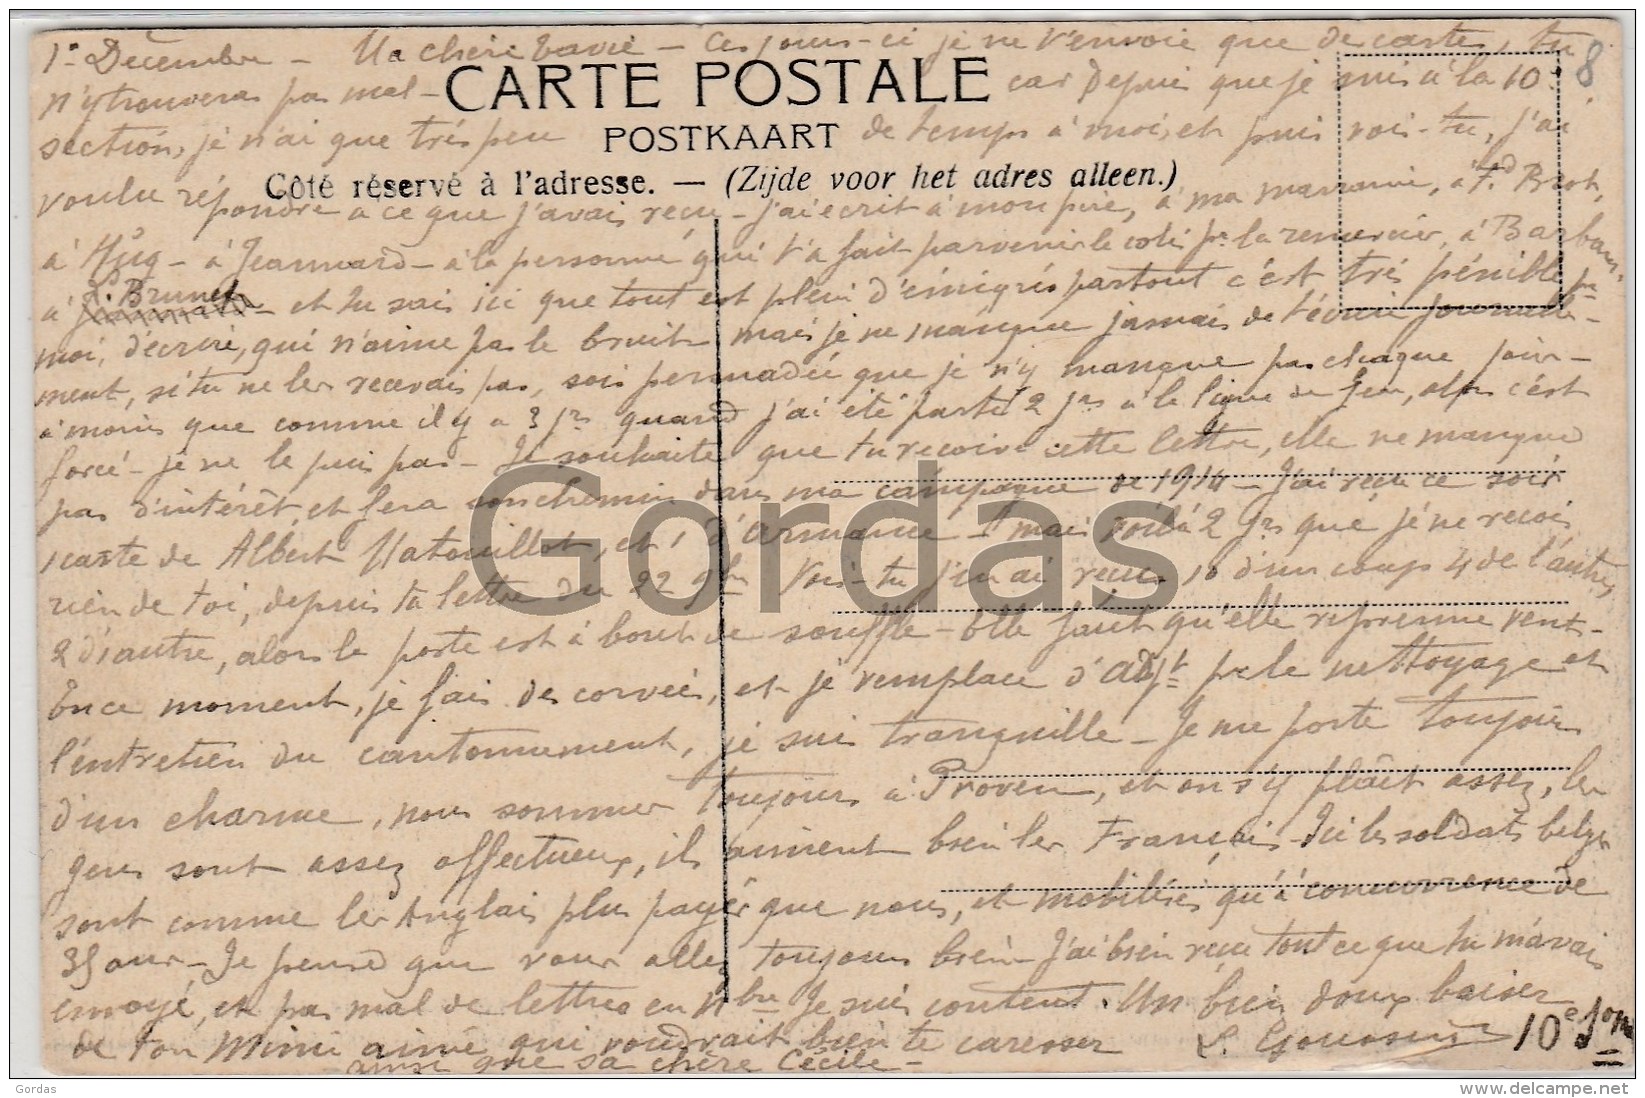 1er Décembre – Ma chère – Ces jours-ci je ne t'envoie que des cartes, tu
8
n'y trouveras pas mal – CARTE POSTALE car depuis que je suis à la 10e
section, je n'ai que très peu POSTKAART de temps à moi, et puis vois-tu, j'ai
Côté réservé à l'adresse. — (Zijde voor het adres alleen.)
voulu répondre à ce que j'avais reçu – j'ai écrit à mon père, à ma marraine, à
à Hug – à Jeannard – à la personne qui t'a fait parvenir le colis pr la remercier, à
à Brunet – et tu sais ici que tout est plein d'émigrés partout c'est très pénible pr
moi, d'écrire, qui n'aime pas le bruit – mais je ne manque jamais de t'écrire journelle-
ment, si tu ne les recevais pas, sois persuadée que je n'y manque pas chaque jour –
à moins que comme il y a 3 jrs quand j'ai été parti 2 jrs à la ligne de feu, alors c'est
forcé – je ne le puis pas – Je souhaite que tu reçoives cette lettre, elle ne manque
pas d'intérêt, et fera son chemin dans ma campagne de 1914 – J'ai reçu ce soir
1 carte de Albert Matouillot, et 1 d'Armance – mais voilà 2 jrs que je ne reçois
rien de toi, depuis ta lettre du 22 9bre Vois-tu j'en ai reçu 10 d'un coup 4 de l'autre,
2 d'1 autre, alors la poste est à bout de souffle – Elle faut qu'elle reprenne vent –
En ce moment, je fais des corvées, et je remplace d'adjt pr le nettoyage et
l'entretien du cantonnement, je suis tranquille – Je me porte toujours
d'un charme, nous sommes toujours à Proven, et on s'y plait assez, les
gens sont assez affectueux, ils aiment bien les Français – Ici les soldats belges
sont comme les Anglais plus payés que nous, et mobilisés qu'à concurrence de
35 ans – Je pense que vous allez toujours bien – J'ai bien reçu tout ce que tu m'avais
envoyé, et pas mal de lettres en Nbre Je suis content. Un bien doux baiser
de ton Mimi aimé qui voudrait bien te caresser L. 10e Son
ainsi que sa chère Cécile –
Gordas
Gordas
delcampe.net